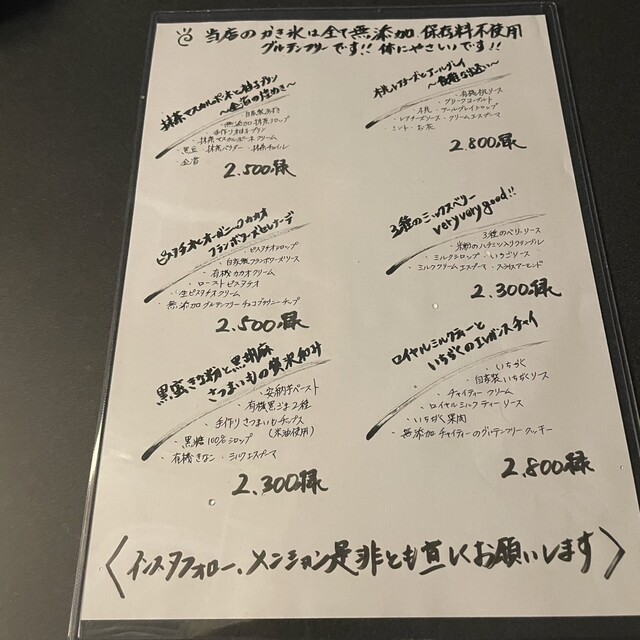 当店のかき氷は全て無添加 保存料不使用
グルテンフリーです!! 体にやさしい♪です!!
抹茶マスカルポーネと柚子プリン
〜金箔の煌めき〜
・自家製あずき
・無添加抹茶シロップ
・手作り柚子プリン
・抹茶マスカルポーネクリーム
・黒豆 ・抹茶パウダー ・抹茶チュイル
・金箔
2.500円様
桃レアチーズとアールグレイ
・有機桃ソース
・桃 ・グリークヨーグルト
・アールグレイシロップ
・レアチーズソース ・クリームエスプーマ
・ミント ・お茶
2.800円様
ピスタチオとオーガニックカカオ
フランボワーズセレナーデ
・ピスタチオシロップ
・自家製フランボワーズソース
・有機カカオクリーム
・ローストピスタチオ
・生ピスタチオクリーム
・無添加グルテンフリーチョコブラウニーチップ
2.500円様
3種のミックスベリー
very very good!!
・3種のベリーソース
・ミルクシロップ ・いちごソース
・ミルククリームエスプーマ ・スライスアーモンド
2.300円様
黒蜜きな粉と黒胡麻
さつまいもの贅沢和み
・安納芋ペースト
・有機黒ごま2種
・手作りさつまいもチップス
(米油使用)
・黒糖100%シロップ
・有機きなこ ・ミルクエスプーマ
2.300円様
ロイヤルミルクティーと
いちぢくのエレガンスチャイ
・いちぢく
・自家製いちぢくソース
・チャイティークリーム
・ロイヤルミルクティーソース
・いちぢく果肉
・無添加チャイティーのグルテンフリークッキー
2.800円様
〈インスタフォロー、メンション是非とも宜しくお願いします〉